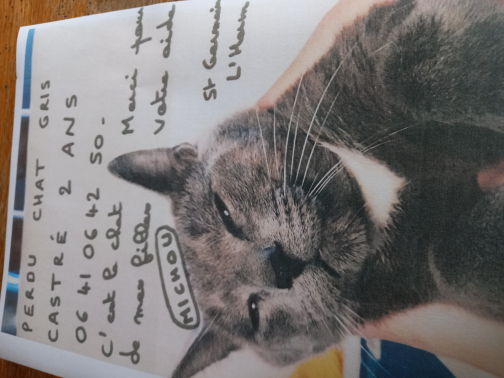 PERDU CHAT GRIS
CASTRÉ 2 ANS
06 41 06 42 50-
C'est le chat
de mes filles
MICHOU
Merci pour
votre aide
St Germain
L'Herm